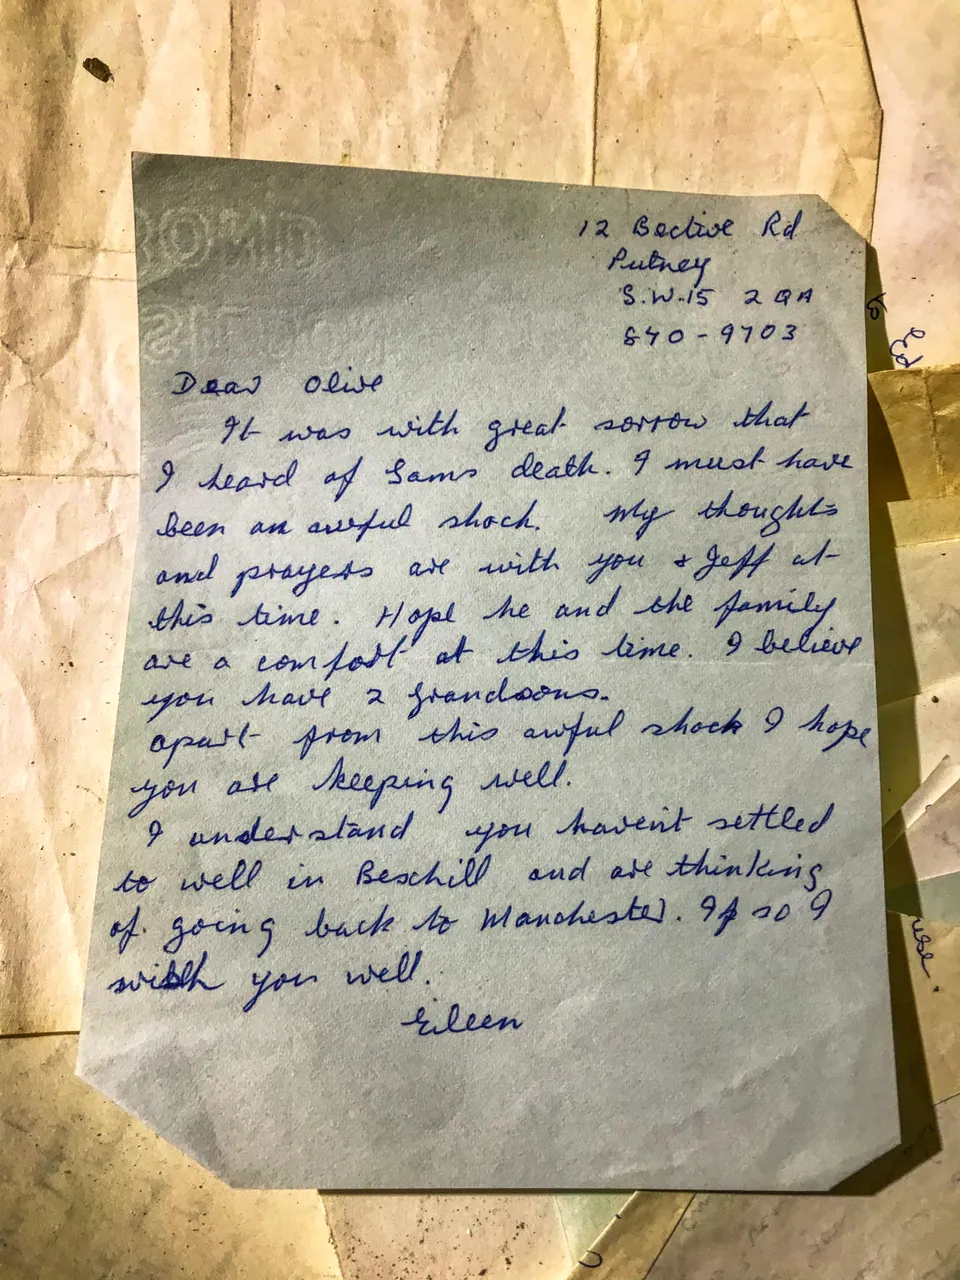 12 Bective Rd
Putney
S.W.15 2QA
840-9703
Dear Olive
It was with great sorrow that
I heard of Sams death. I must have
been an awful shock. My thoughts
and prayers are with you & Jeff at
this time. Hope he and the family
are a comfort at this time. I believe
you have 2 Grandsons.
apart from this awful shock I hope
you are keeping well.
I understand you haven't settled
to well in Bexhill and are thinking
of. going back to Manchester. If so I
wish you well.
Eileen
use.